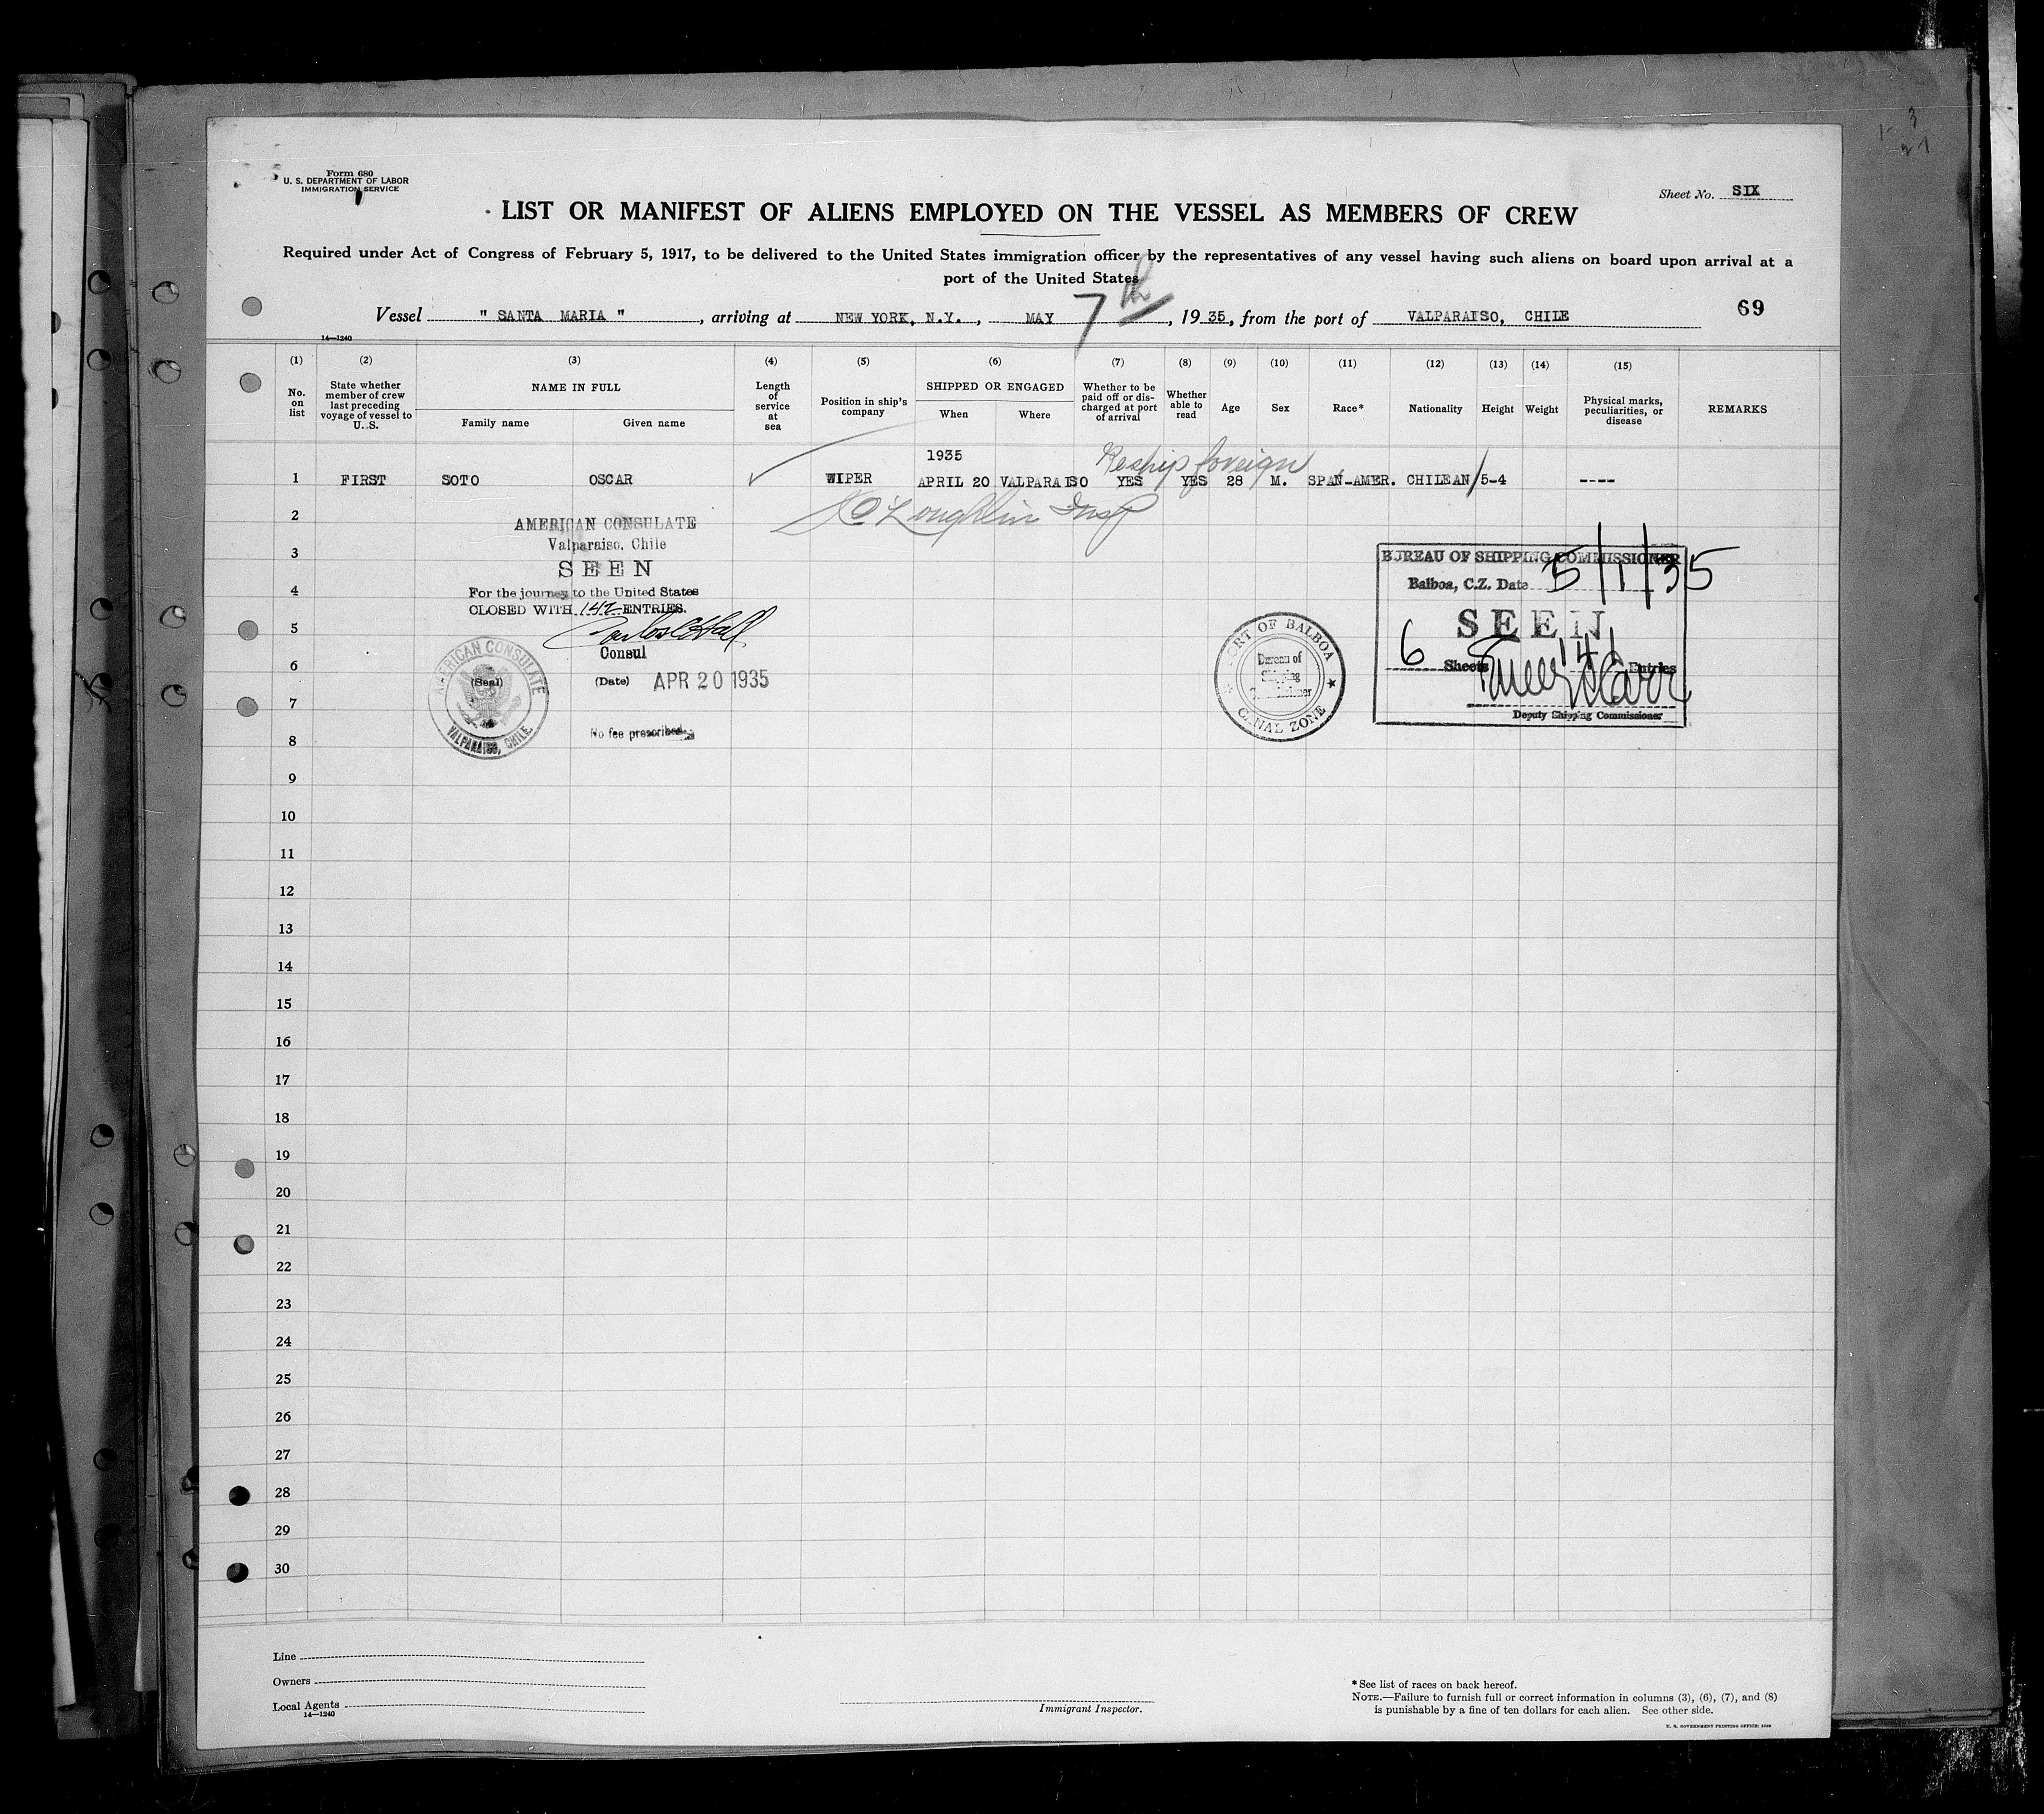 Form 680
U. S. DEPARTMENT OF LABOR
IMMIGRATION SERVICE
Sheet No. SIX
LIST OR MANIFEST OF ALIENS EMPLOYED ON THE VESSEL AS MEMBERS OF CREW
Required under Act of Congress of February 5, 1917, to be delivered to the United States immigration officer by the representatives of any vessel having such aliens on board upon arrival at a
port of the United States
Vessel " SANTA MARIA ", arriving at NEW YORK, N.Y., MAY 7th, 1935, from the port of VALPARAISO, CHILE
69
14—1240
(1) (2) (3) (4) (5) (6) (7) (8) (9) (10) (11) (12) (13) (14) (15)
No. on list
State whether member of crew last preceding voyage of vessel to U. S.
NAME IN FULL
Family name Given name
Length of service at sea
Position in ship's company
SHIPPED OR ENGAGED
When Where
Whether to be paid off or discharged at port of arrival
Whether able to read
Age
Sex
Race*
Nationality
Height
Weight
Physical marks, peculiarities, or disease
REMARKS
1935
Reship foreign
1 FIRST SOTO OSCAR WIPER APRIL 20 VALPARAISO YES YES 28 M. SPAN-AMER. CHILEAN 5-4 ----
O'Loughlin Insp
2
AMERICAN CONSULATE
Valparaiso, Chile
SEEN
For the journey to the United States
CLOSED WITH 142 ENTRIES.
Consul
(Seal)
(Date) APR 20 1935
No fee prescribed
AMERICAN CONSULATE
VALPARAISO, CHILE
PORT OF BALBOA
Bureau of
Shipping
CANAL ZONE
BUREAU OF SHIPPING COMMISSIONER
Balboa, C.Z. Date 5/1/35
SEEN
6 Sheets 141 Entries
Deputy Shipping Commissioner
3
4
5
6
7
8
9
10
11
12
13
14
15
16
17
18
19
20
21
22
23
24
25
26
27
28
29
30
Line
Owners
Local Agents
14—1240
Immigrant Inspector.
*See list of races on back hereof.
NOTE.—Failure to furnish full or correct information in columns (3), (6), (7), and (8)
is punishable by a fine of ten dollars for each alien. See other side.